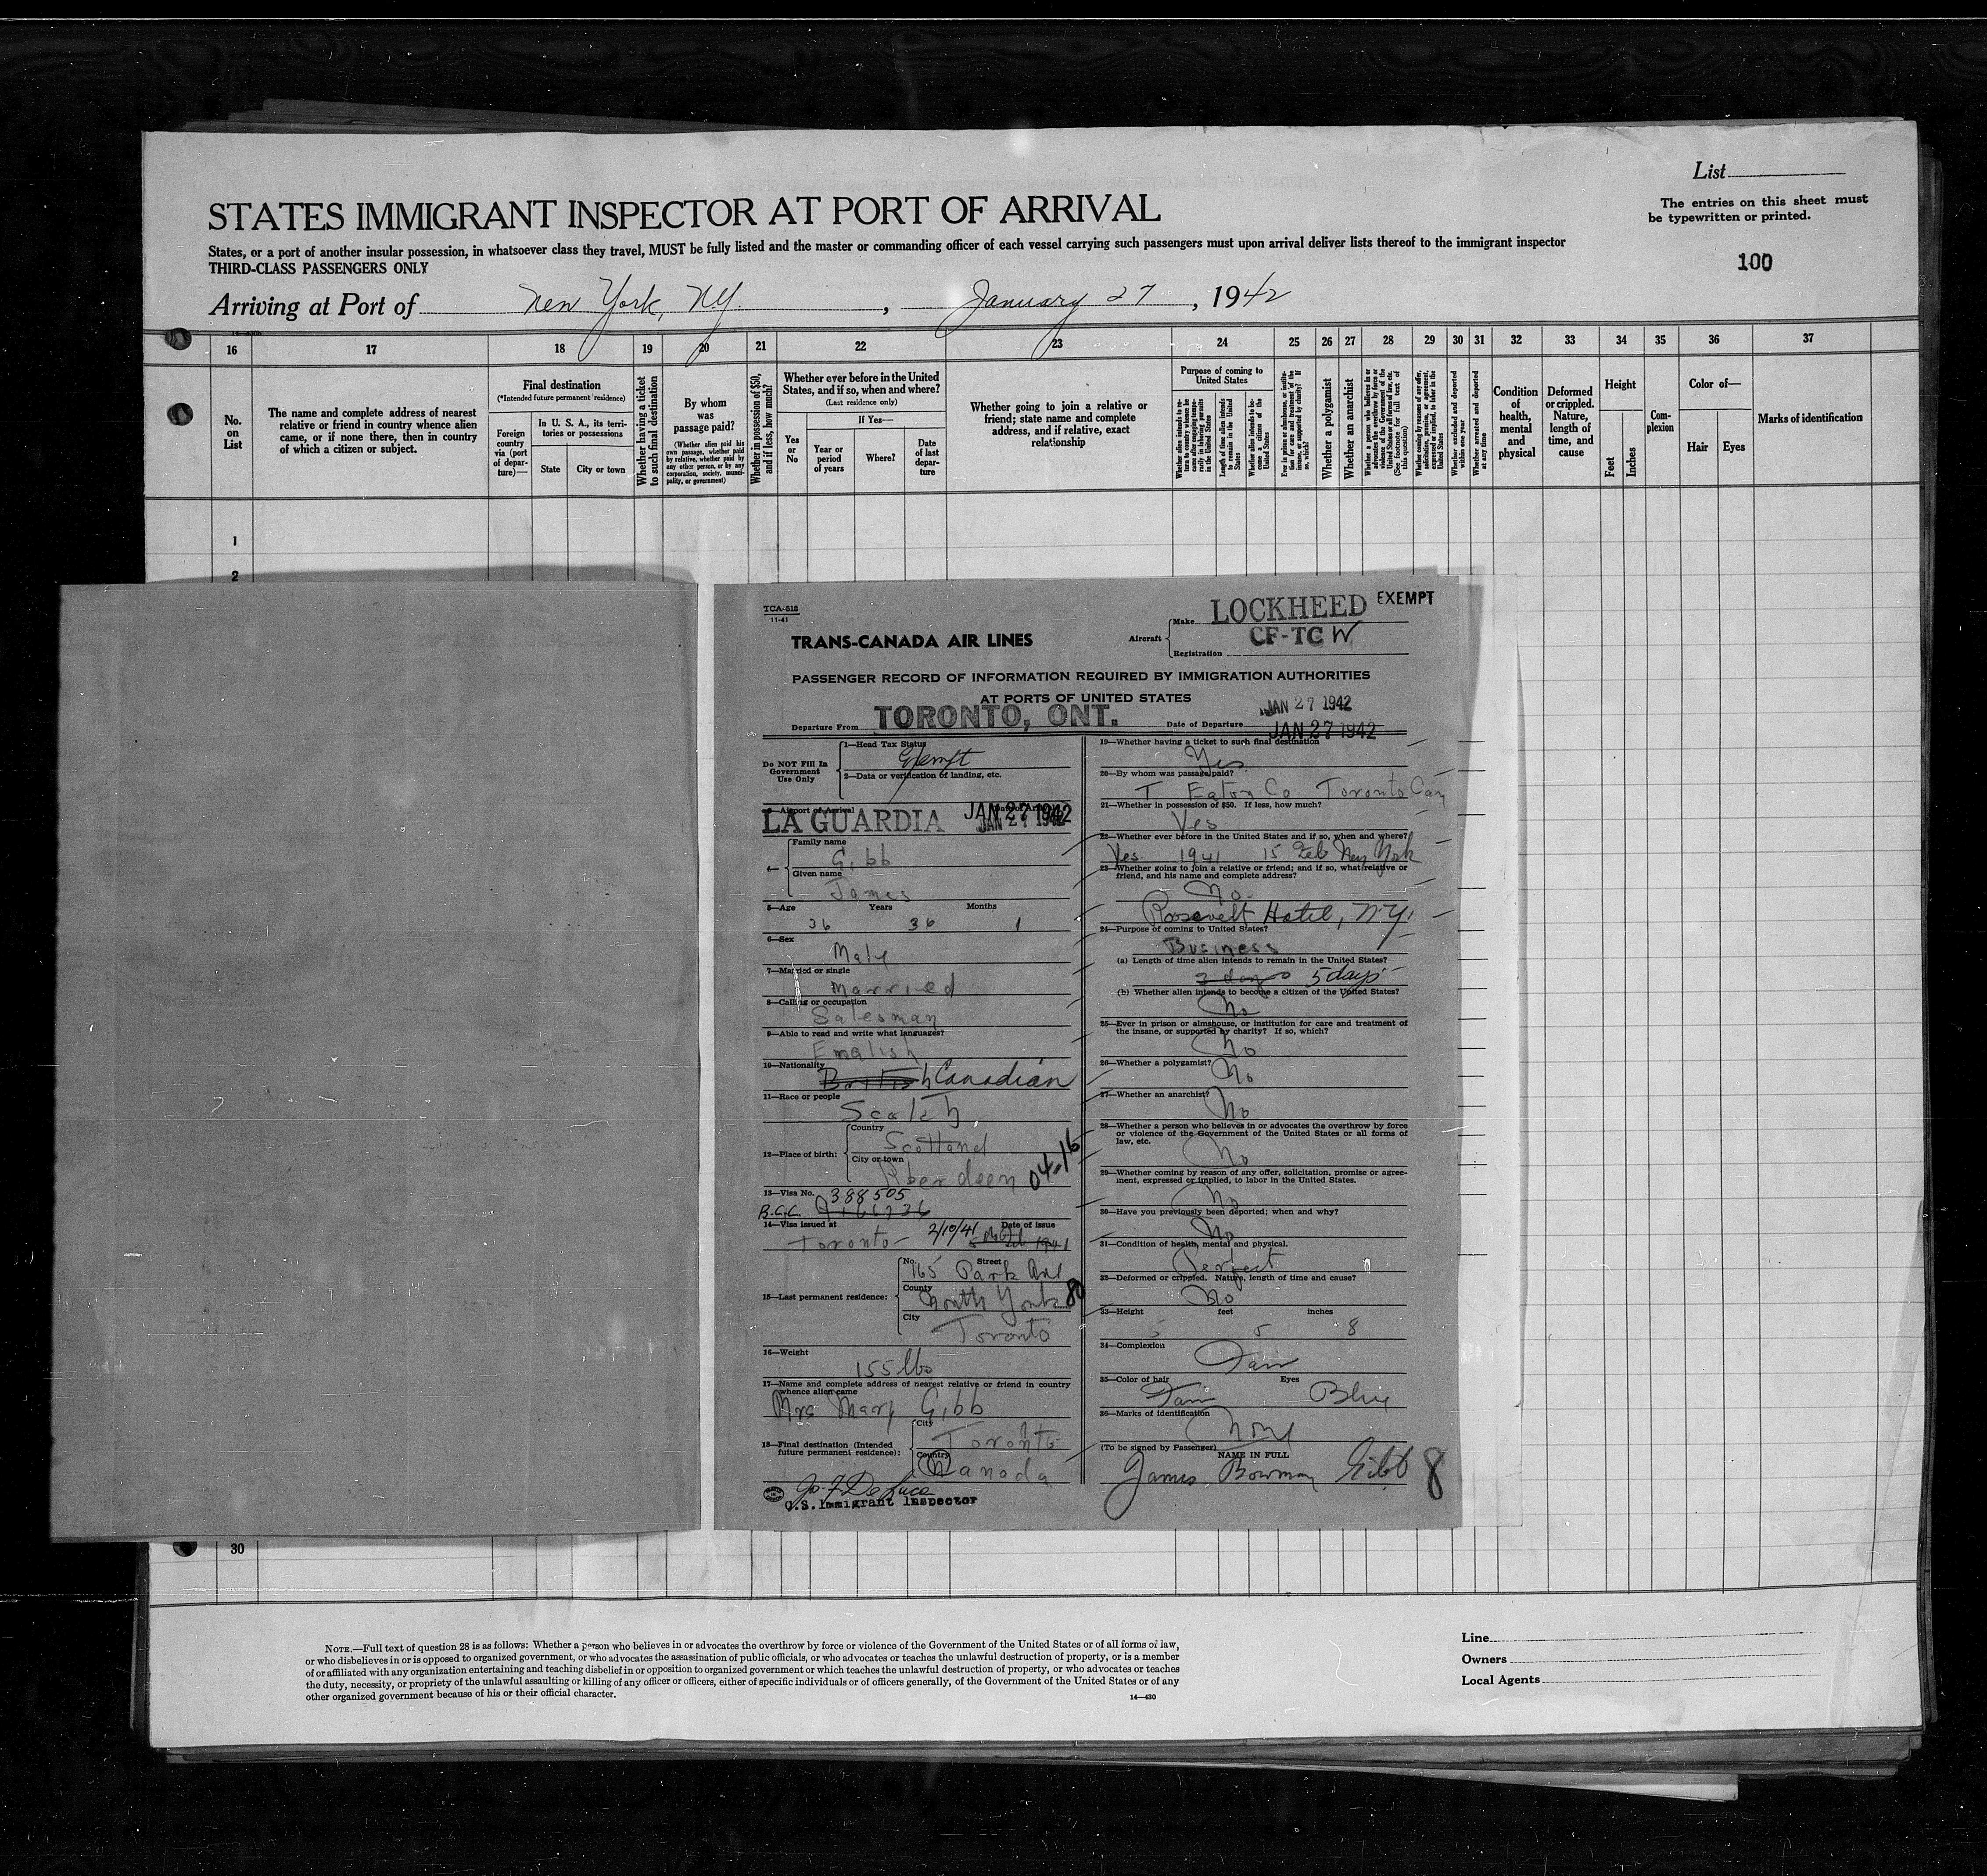 List
STATES IMMIGRANT INSPECTOR AT PORT OF ARRIVAL
The entries on this sheet must
be typewritten or printed.
States, or a port of another insular possession, in whatsoever class they travel, MUST be fully listed and the master or commanding officer of each vessel carrying such passengers must upon arrival deliver lists thereof to the immigrant inspector
THIRD-CLASS PASSENGERS ONLY
100
Arriving at Port of New York, NY. , January 27 , 1942
16 17 18 19 20 21 22 23 24 25 26 27 28 29 30 31 32 33 34 35 36 37
No.
on
List
The name and complete address of nearest
relative or friend in country whence alien
came, or if none there, then in country
of which a citizen or subject.
Final destination
(*Intended future permanent residence)
Foreign
country
via (port
of depar-
ture)—
In U. S. A., its terri-
tories or possessions
State
City or town
Whether having a ticket
to such final destination
By whom
was
passage paid?
(Whether alien paid his
own passage, whether paid
by relative, whether paid by
any other person, or by any
corporation, society, munici-
pality, or government)
Whether in possession of $50,
and if less, how much?
Whether ever before in the United
States, and if so, when and where?
(Last residence only)
Yes
or
No
If Yes—
Year or
period
of years
Where?
Date
of last
depar-
ture
Whether going to join a relative or
friend; state name and complete
address, and if relative, exact
relationship
Purpose of coming to
United States
Length of time alien intends
to remain in the United
States
Whether alien intends to be-
come a citizen of the
United States
Whether a polygamist
Whether an anarchist
Whether excluded and deported
within one year
Whether arrested and deported
at any time
Condition
of
health,
mental
and
physical
Deformed
or crippled.
Nature,
length of
time, and
cause
Height
Feet
Inches
Com-
plexion
Color of—
Hair
Eyes
Marks of identification
1
2
TCA-518
11-41
TRANS-CANADA AIR LINES
Aircraft
Make LOCKHEED EXEMPT
CF-TCW
Registration
PASSENGER RECORD OF INFORMATION REQUIRED BY IMMIGRATION AUTHORITIES
AT PORTS OF UNITED STATES
JAN 27 1942
Departure From TORONTO, ONT. Date of Departure JAN 27 1942
Do NOT Fill In
Government
Use Only
1—Head Tax Status
Exempt
2—Data or verification of landing, etc.
3—Airport of Arrival
LA GUARDIA JAN 27 1942
JAN 27 1942
4—
Family name
Gibb
Given name
James
5—Age Years Months
36 36 1
6—Sex
Male
7—Married or single
Married
8—Calling or occupation
Salesman
9—Able to read and write what languages?
English
10—Nationality
British Canadian
11—Race or people
Scotch
12—Place of birth:
Country
Scotland
City or town
Aberdeen 04-16
13—Visa No. 388505
B.C.C.
14—Visa issued at Date of issue
Toronto 2/10/41
15—Last permanent residence:
No. Street
165 Park Ave
County
North York 80
City
Toronto
16—Weight
155 lbs
17—Name and complete address of nearest relative or friend in country
whence alien came
Mrs Mary Gibb
18—Final destination (Intended
future permanent residence):
City
Toronto
Country
Canada
Jo. F De Luca
U.S. Immigrant Inspector
19—Whether having a ticket to such final destination
Yes
20—By whom was passage paid?
T Eaton Co Toronto Can
21—Whether in possession of $50. If less, how much?
Yes
22—Whether ever before in the United States and if so, when and where?
Yes. 1941 15 Feb New York
23—Whether going to join a relative or friend; and if so, what relative or
friend, and his name and complete address?
No.
Roosevelt Hotel, N.Y.
24—Purpose of coming to United States?
Business
(a) Length of time alien intends to remain in the United States?
3 days 5 days
(b) Whether alien intends to become a citizen of the United States?
No
25—Ever in prison or almshouse, or institution for care and treatment of
the insane, or supported by charity? If so, which?
No
26—Whether a polygamist?
No
27—Whether an anarchist?
No
28—Whether a person who believes in or advocates the overthrow by force
or violence of the Government of the United States or all forms of
law, etc.
No
29—Whether coming by reason of any offer, solicitation, promise or agree-
ment, expressed or implied, to labor in the United States.
No
30—Have you previously been deported; when and why?
No
31—Condition of health, mental and physical.
Perfect
32—Deformed or crippled. Nature, length of time and cause?
No
33—Height feet inches
5 5 8
34—Complexion
Fair
35—Color of hair Eyes
Fair Blue
36—Marks of identification
None
(To be signed by Passenger) NAME IN FULL
James Bowman Gibb 8
30
NOTE.—Full text of question 28 is as follows: Whether a person who believes in or advocates the overthrow by force or violence of the Government of the United States or of all forms of law,
or who disbelieves in or is opposed to organized government, or who advocates the assassination of public officials, or who advocates or teaches the unlawful destruction of property, or is a member
of or affiliated with any organization entertaining and teaching disbelief in or opposition to organized government or which teaches the unlawful destruction of property, or who advocates or teaches
the duty, necessity, or propriety of the unlawful assaulting or killing of any officer or officers, either of specific individuals or of officers generally, of the Government of the United States or of any
other organized government because of his or their official character.
14—430
Line
Owners
Local Agents